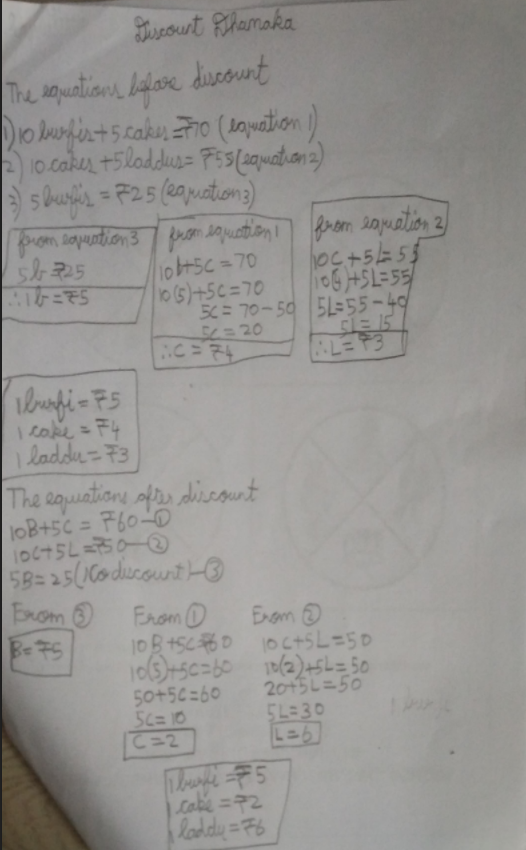 Discount Dhamaka
The equations before discount
1) 10 burfis + 5 cakes = ₹70 (equation 1)
2) 10 cakes + 5 laddus = ₹55 (equation 2)
3) 5 burfis = ₹25 (equation 3)
from equation 3
5b = ₹25
∴ 1b = ₹5
from equation 1
10b + 5C = 70
10(5) + 5C = 70
5C = 70 - 50
5C = 20
∴ C = ₹4
from equation 2
10C + 5L = 55
10(4) + 5L = 55
5L = 55 - 40
5L = 15
∴ L = ₹3
1 burfi = ₹5
1 cake = ₹4
1 laddu = ₹3
The equations after discount
10B + 5C = ₹60 - ①
10C + 5L = ₹50 - ②
5B = 25 (No discount) - ③
From ③
B = ₹5
From ①
10B + 5C = 60
10(5) + 5C = 60
50 + 5C = 60
5C = 10
C = 2
From ②
10C + 5L = 50
10(2) + 5L = 50
20 + 5L = 50
5L = 30
L = 6
1 burfi = ₹5
1 cake = ₹2
1 laddu = ₹6